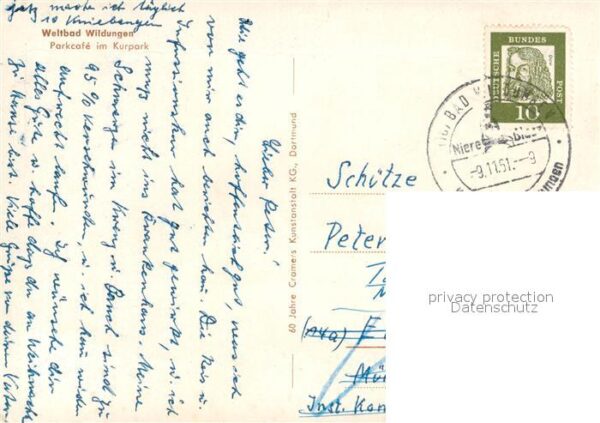 jetz mache ich täglich
10 Kniebeugen
Weltbad Wildungen
Parkcafé im Kurpark
Lieber Peter!
Wie geht es dir, hoffentlich gut, was ich
von mir auch berichten kan. Die Neu
Infusionskur hat gut gewirkt, u. ich
muß nicht ins Krankenhaus. Meine
Schmerzen im Kreuz u. sind zu
95% verschwunden, u. ich kan wieder
aufrecht laufen. Ich wünsche dir
alles Gute u. hoffe daß du an Weihnachte
zu Hause bist. Viele Grüße von deinem Vater
60 Jahre Cramers Kunstanstalt KG., Dortmund
DEUTSCHE BUNDES POST
10
BAD
Niere
-9.11.61.-9
Schütze
Peter
(14a)
Mü
Inst. Kom
privacy protection
Datenschutz